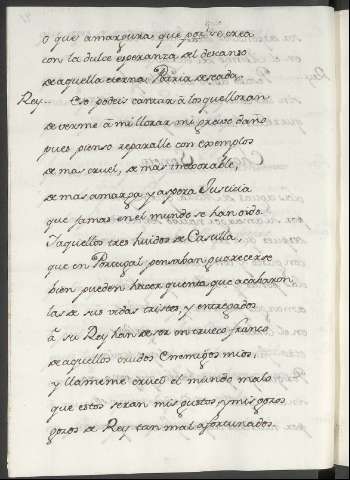 o que amargura que por ti se crea
con la dulce esperanza del descanso
de aquella eterna Patria deseada.
Rey.. Ese podeis cantar à los que lloran
de verme à mi llorar mi grave daño
pues pienso reparalle con exemplos
de mas cruel, de mas inexorable,
de mas amarga y aspera Justicia
que jamas en el mundo se han oydo
Y aquellos tres huidos de Castilla,
que en Portugal pensaban guarecerse
bien pueden hacer quenta que acabaron
las de sus vidas tristes, y entregados
à su Rey han de ser en trueco franco
de aquellos crudos Enemigos mios,
y llameme cruel el mundo malo
que estos seran mis gustos y mis gozos
gozos de Rey tan mal afortunados.